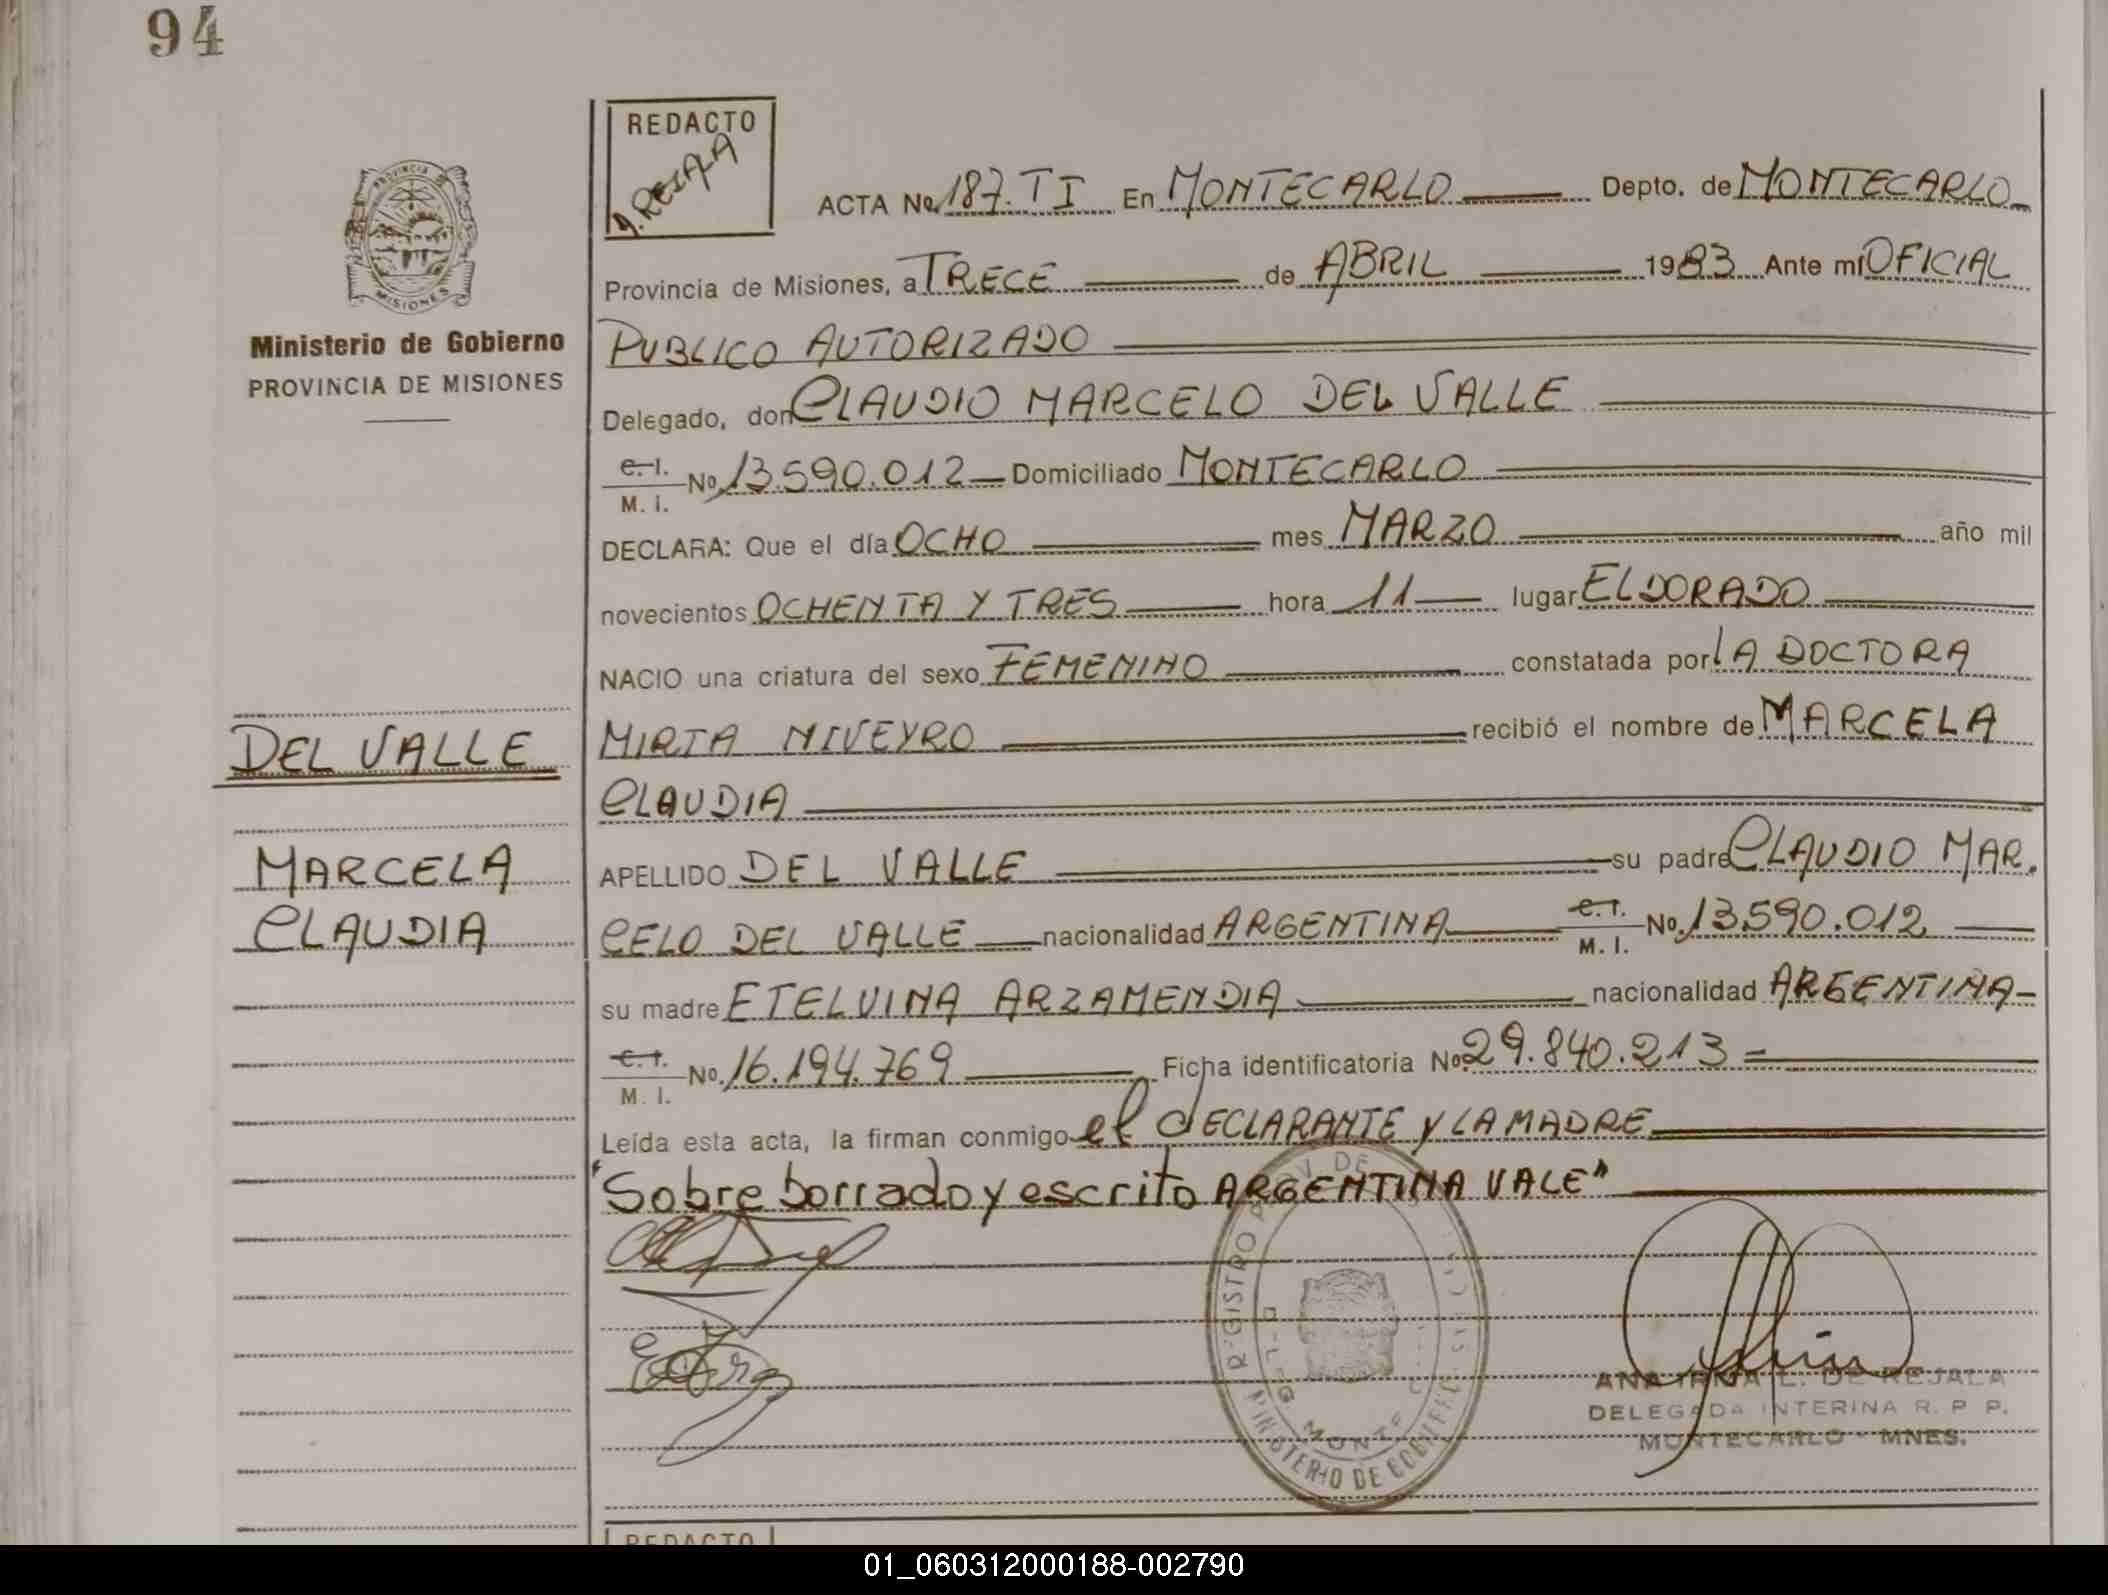 94
REDACTO
A. REJALA
ACTA No. 187. T I En MONTECARLO Depto. de MONTECARLO
Provincia de Misiones, a TRECE de ABRIL 1983 Ante mí OFICIAL
PUBLICO AUTORIZADO
Delegado, don CLAUDIO MARCELO DEL VALLE
C. I. M. I. No. 13.590.012 Domiciliado MONTECARLO
DECLARA: Que el día OCHO mes MARZO año mil
novecientos OCHENTA Y TRES hora 11 lugar ELDORADO
NACIO una criatura del sexo FEMENINO constatada por LA DOCTORA
MIRTA NIVEYRO recibió el nombre de MARCELA
CLAUDIA
APELLIDO DEL VALLE su padre CLAUDIO MAR.
CELO DEL VALLE nacionalidad ARGENTINA C. I. M. I. No. 13.590.012
su madre ETELVINA ARZAMENDIA nacionalidad ARGENTINA-
C. I. M. I. No. 16.194.769 Ficha identificatoria No. 29.840.213
Leída esta acta, la firman conmigo el dECLARANTE y LA MADRE
"Sobre borrado y escrito ARGENTINA VALE"
PROVINCIA DE
MISIONES
Ministerio de Gobierno
PROVINCIA DE MISIONES
DEL VALLE
MARCELA
CLAUDIA
ANA IRMA L. DE REJALA
DELEGADA INTERINA R. P. P.
MONTECARLO - MNES.
REDACTO
01_060312000188-002790